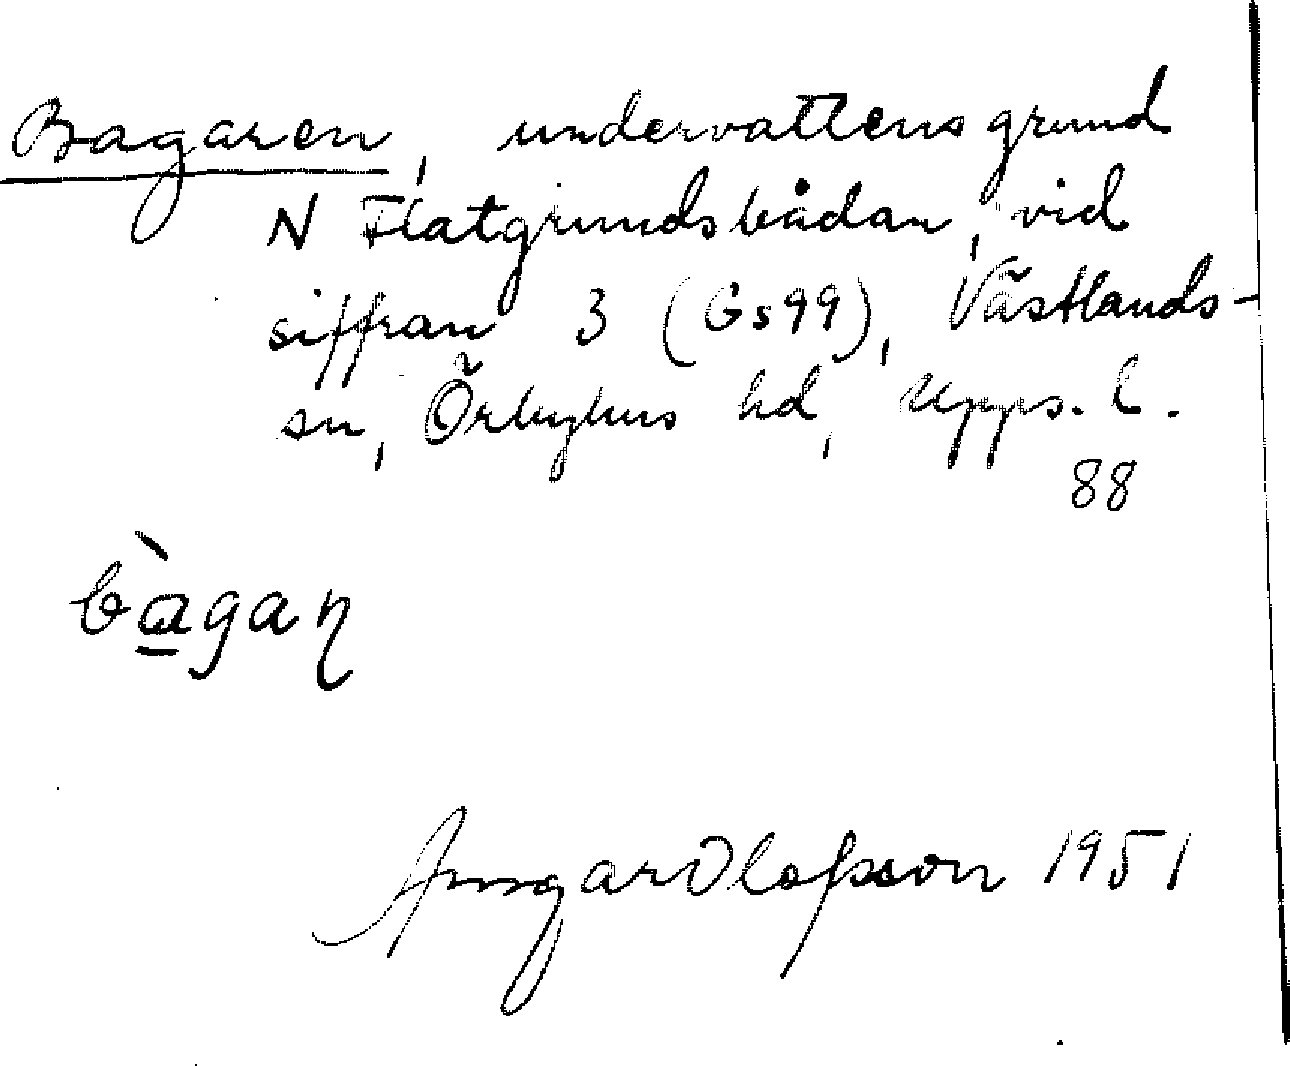 Bagaren, undervattensgrund
N Flatgrundsbådan, vid
siffran 3 (Gs99), Västlands-
sn, Örbyhus hd, Upps. l.
88
bàgaɳ
Ansgar Olofsson 1951